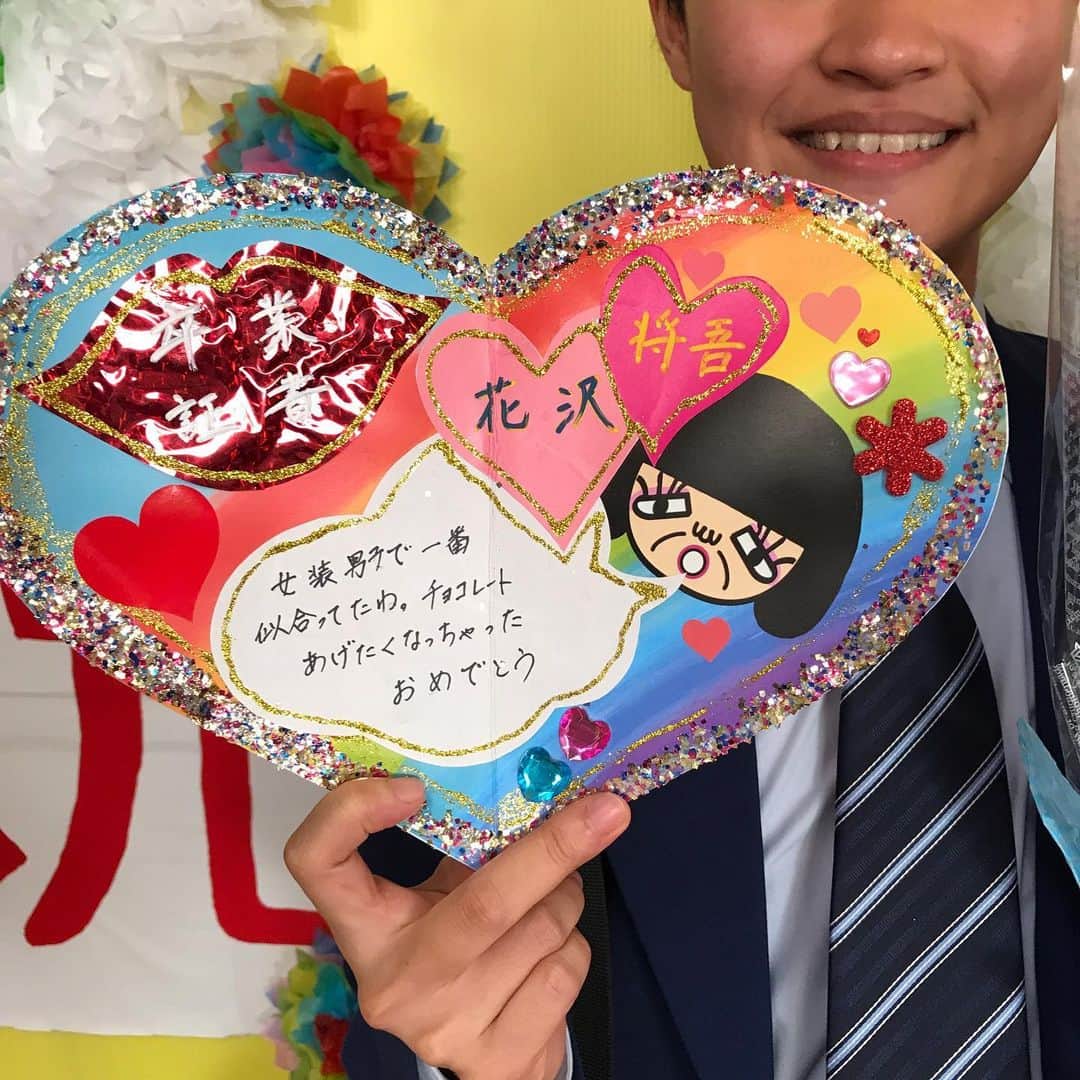 卒業
証書
花沢
将吾
女装男子で一番
似合ってたわ。チョコレート
あげたくなっちゃった
おめでとう